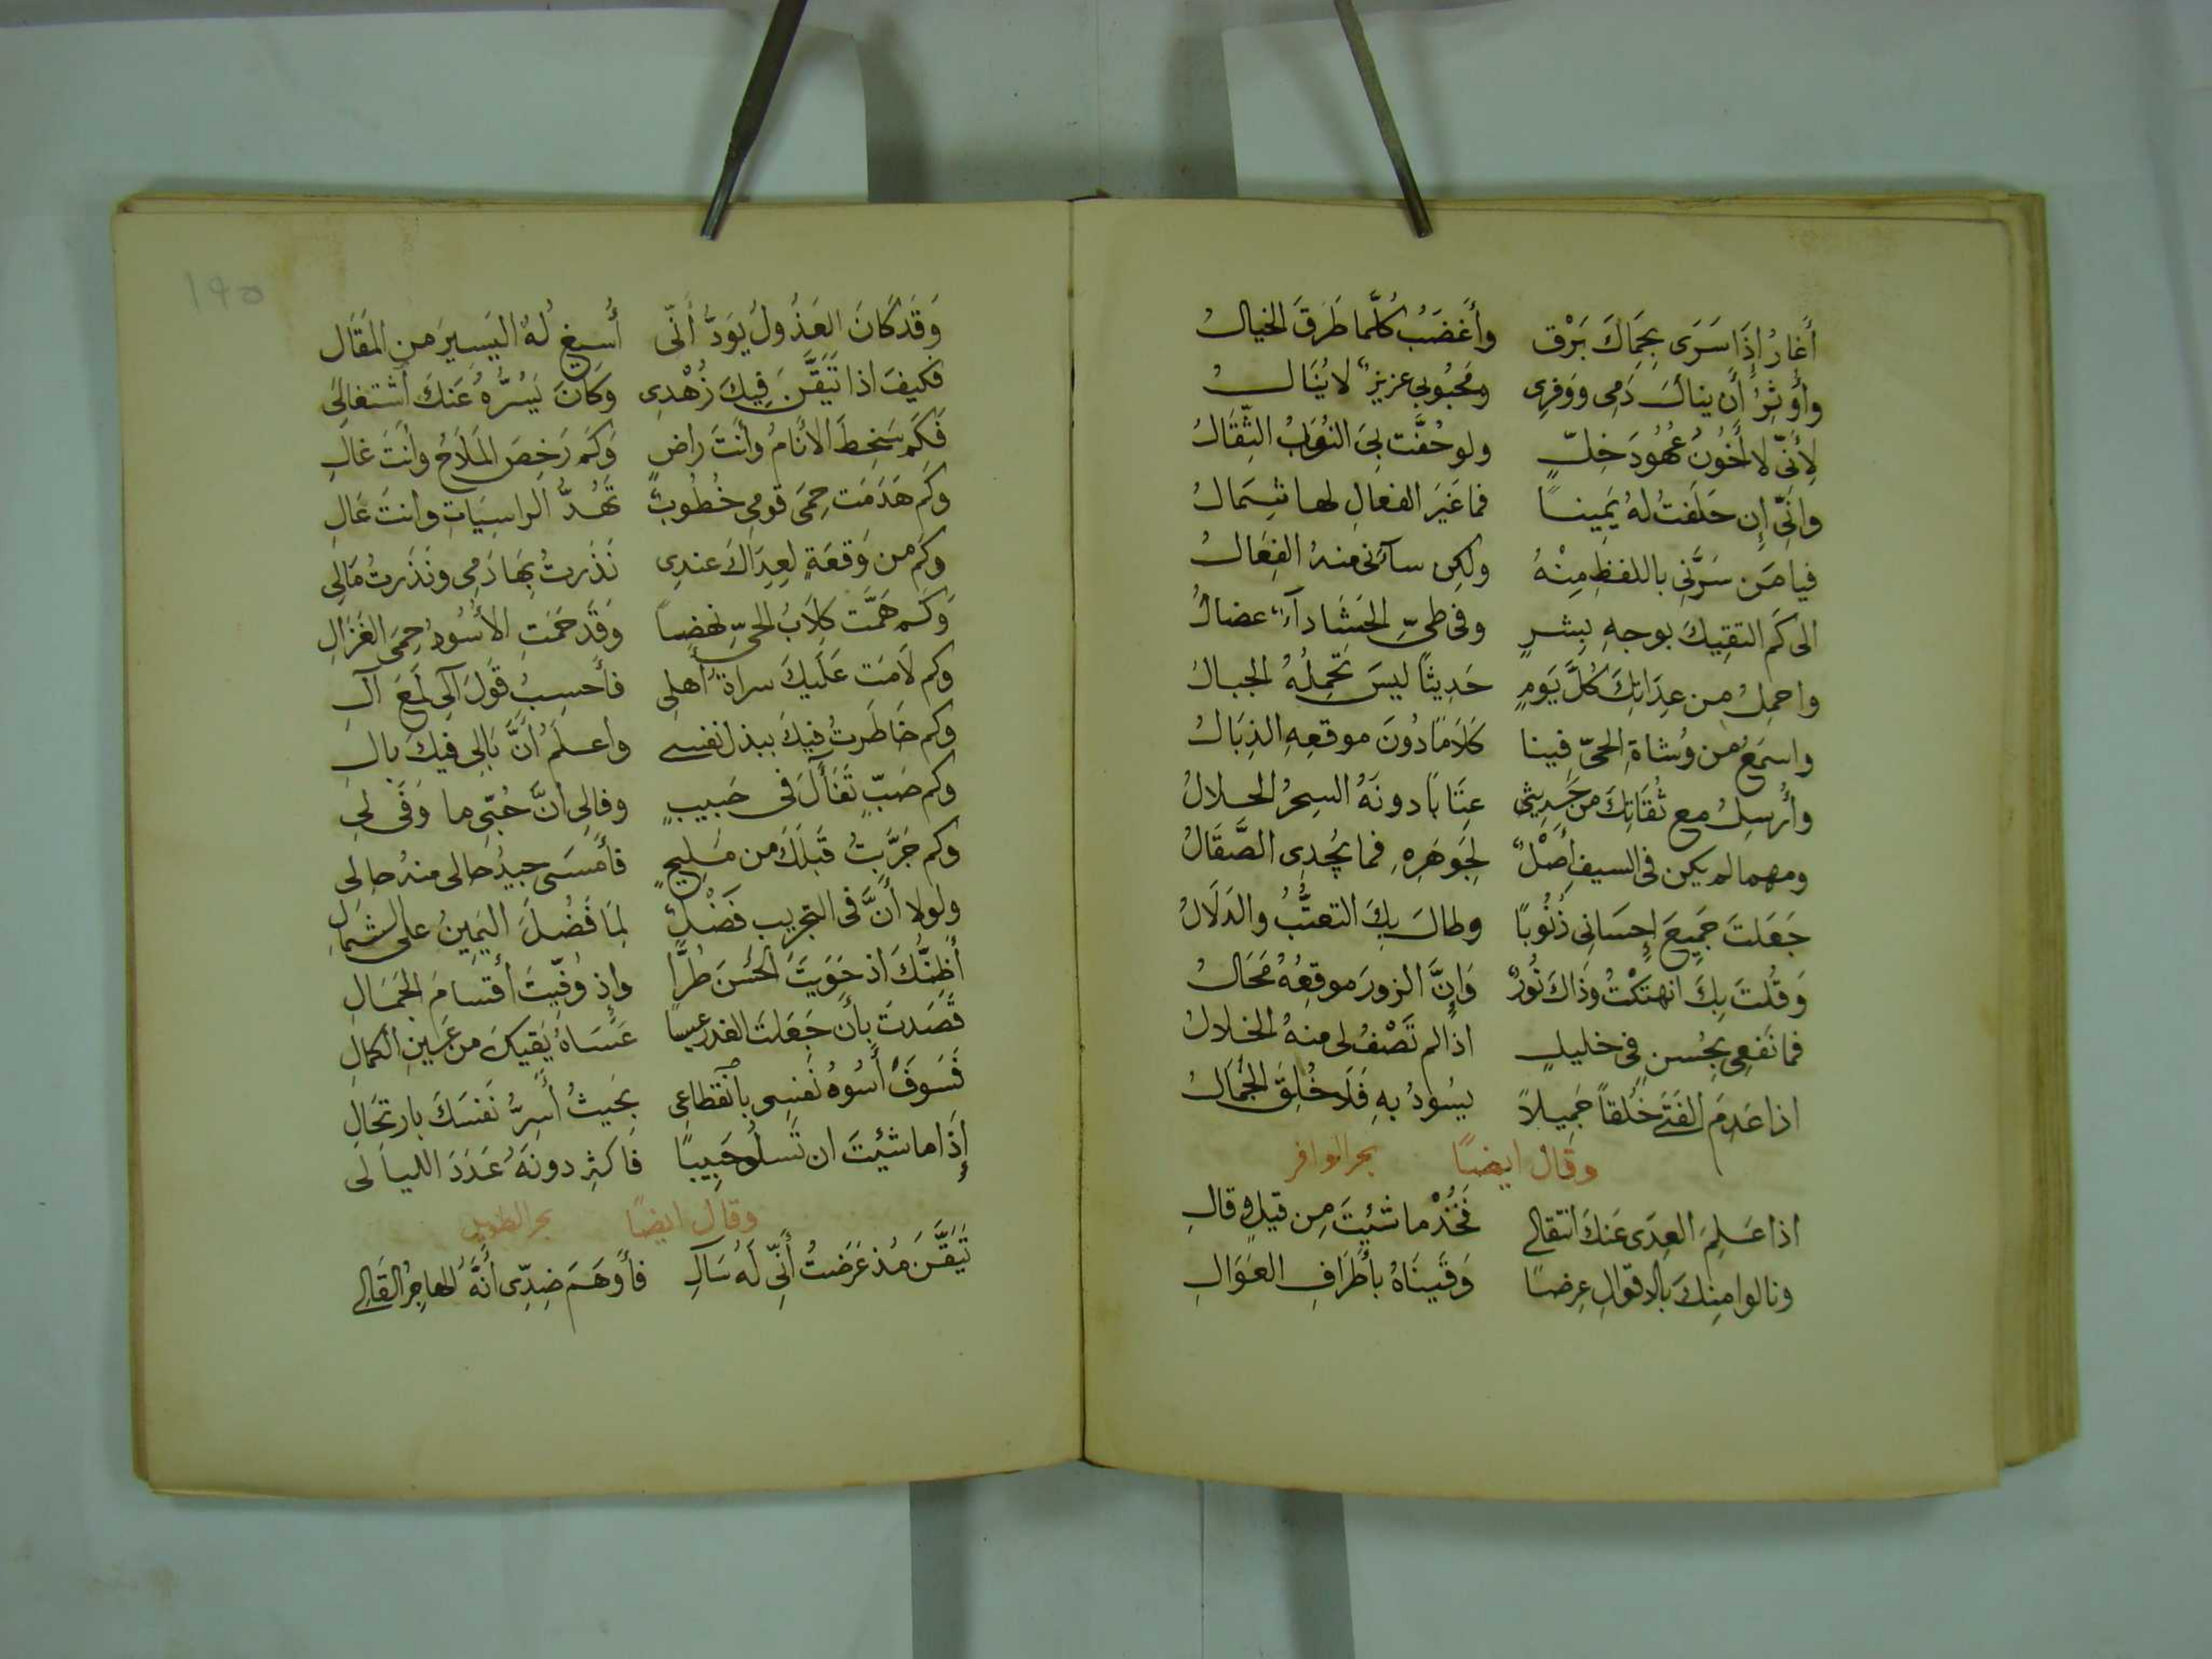 أَغارُ إِذَا سَرَى بِحِمَاكَ بَرْق وأَغضَبُ كُلَّما طَرَقَ الخيالُ
وأوثِرُ أَن ينالَ دَمِى ووَفرِى ومَحبُوبى عزيزٌ لا يُنَالُ
لِأَنّى لا أَخُونُ عُهُودَ خِلٍّ ولو حُفَّت بِىَ النُوَبُ الثِّقَالُ
وانِّى إِن حَلَفتُ لهُ يَمِيناً فما غَيرَ الفعالِ لها شِمَالُ
فيا مَن سَرَّنِى باللفظِ مِنْهُ ولكِن سآءنى منهُ الفِعَالُ
الى كَم التقِيكَ بوجهِ بِشرٍ وفى طىِّ الحَشَا دآءٌ عضالُ
واحمِلُ مِن عِدَاتِكَ كُلَّ يَومٍ حَدِيثاً ليسَ تَحمِلُهُ الجبالُ
واسمَعُ من وُشاةِ الحىّ فينا كَلَامًا دُونَ موقعِهِ النِبَالُ
وأُرسِلُ مع ثُقَاتِكَ من حَدِيثى عِتَابًا دونَهُ السِحرُ الحلالُ
ومهما لم يكن فى السيفِ أَصْلٌ لِجَوهَرِهِ فما يُجدِى الصَّقَالُ
جَعَلتَ جَمِيعَ إِحسَانِى ذُنُوبًا وطالَ بِكَ التعتُّبُ والدَلَالُ
وَقُلتَ بِكَ انهتَكْتُ وذَاكَ زُورٌ وَإِنَّ الزورَ موقِعُهُ مَحَالُ
فما نَفعِى بِحُسنٍ فى خليلٍ اذا لم تَصْفُ لى منهُ الخلالُ
اذا عَدِمَ الفَتَى خُلُقاً جَمِيلاً يسُودُ بهِ فَلَا خُلِقَ الجَمَالُ
وقال ايضًا بحر الوافر
اذا عَلِمَ العِدَى عَنكَ انتقالى فَخُذْ ما شِيتَ مِن قيلٍ وقالِ
ونالوا مِنكَ بالاقوالِ عِرضًا وَقَينَاهُ بأَطرَافِ العَوَالِ
١٩٥
وَقَد كَانَ العَذُولُ يَوَدُّ أَنّى أُسيغ لهُ اليَسِيرَ من المَقَالِ
فكيفَ اذا تَيَقَّنَ فِيكَ زُهْدِى وَكَانَ يَسُرُّهُ عَنكَ أشتغالى
فَكَم سَخِطَ الأنَامُ وأنتَ راضٍ وَكَم رَخِصَ المِلَاحُ وأنتَ غالِ
وكَم هَدَمَت حِمَى قومِى خُطُوبٌ تَهُدُّ الراسِيَاتِ وأنتَ عَالِ
وكَم من وَقعَةٍ لعِدَاكَ عندِى نَذَرتُ بِهَا دَمِى ونَذَرتُ مَالِى
وَكَم هَمَّت كِلَابُ الحىِّ نهضاً وَقَد حَمَتِ الأُسُودُ حِمَى الغَزَالِ
وكم لَامَت عَلَيكَ سراةُ أهلى فأَحسِبُ قَولَ آلى لَمعَ آلِ
وكم خَاطَرتُ فيكَ ببذل نفسى واعلَمُ أنَّ بَالِى فيكَ بالِ
وكم صَبٍّ تَفَأَّلَ فى حَبيبٍ وفالِى أنَّ حُبّى ما وَفَى لِى
وكم جَرَّبتُ قَبلَكَ من مَلِيحٍ فأَمسَى جيدُ حالى منهُ حالِى
ولولا أنَّ فى التجريبِ فَضْلٌ لِمَا فَضُلَ اليَمِينُ على الشمالِ
أظنُّكَ اذ حَوَيتَ الحُسنَ طُرًّا وإِذ وُفّيتَ أقسامَ الجَمَالِ
قَصَدتَ بأَن جَعَلتَ الغدرَ عيباً عَسَاهُ يَقِيكَ من عَينِ الكمالِ
فَسَوفَ أَسُوءُ نَفسِى بأنقطاعى بِحَيثُ أُسِرُّ نَفسَكَ بارتحَالِ
إذَا ما شئيتَ ان تَسلُو حَبِيبًا فاكثِر دونَهُ عَدَدَ الليالى
وقال ايضًا بحر الطويل
تَيَقَّنَ مُذ عَرَضتُ أَنِّى لَهُ سَالِ فأَوهَمَ ضِدِّى أَنَّهُ الهاجِرُ القَالِى